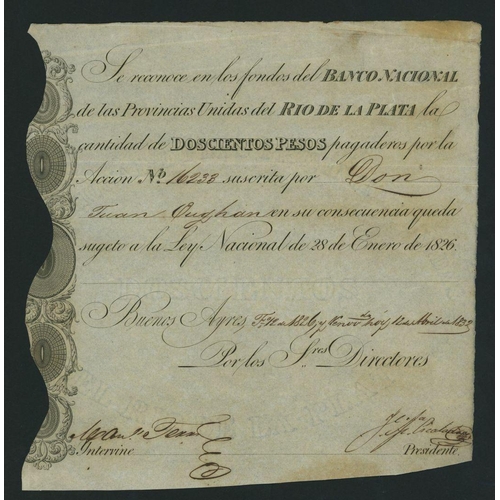 Se reconoce en los fondos del BANCO NACIONAL
de las Provincias Unidas del RIO DE LA PLATA la
cantidad de DOSCIENTOS PESOS pagaderos por la
Accion No. 16233 suscrita por Don
Juan Oughan en su consecuencia queda
sugeto a la Ley Nacional de 28 de Enero de 1826.
Buenos Ayres
Por los Sres Directores
Intervine
Presidente